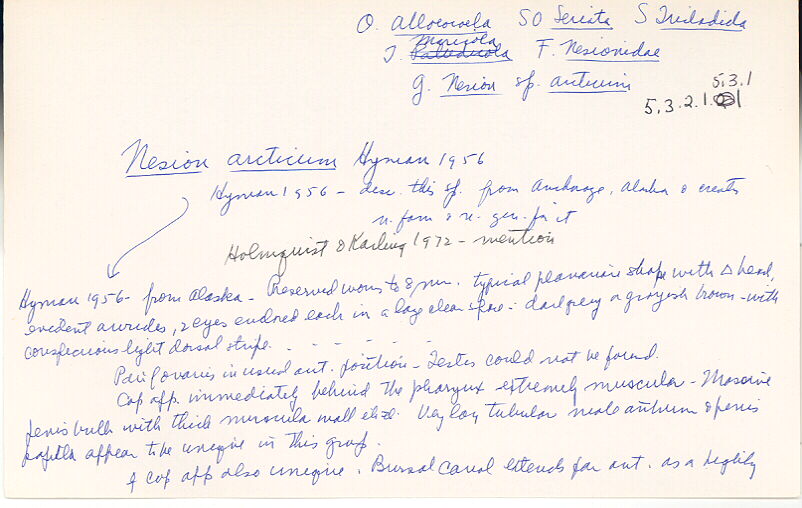 O. Alloeocoela SO Seriata S Tricladida
Maricola
I. Paludicola F. Nesionidae
G. Nesion sp. arcticum
5.3.1
5.3.2.1.1
Nesion arcticum Hyman 1956
Hyman 1956 - desc. this sp. from Anchorage, Alaska & creates
n. fam & n. gen. for it
Holmquist & Karling 1972 - mention
Hyman 1956 - from Alaska - Preserved worms to 8 mm. typical planarian shape with △ head,
evident auricles, 2 eyes enclosed each in a large clear space - dark grey or grayish brown - with
conspicuous light dorsal stripe. - - - - -
Pair of ovaries in usual ant. position - Testes could not be found.
Cop app. immediately behind the pharynx extremely muscular - Massive
penis bulb with thick muscular wall Very long tubular male antrum & penis
papilla appear to be unique in this group.
♀ cop app also unique. Bursal canal extends far ant. as a highly